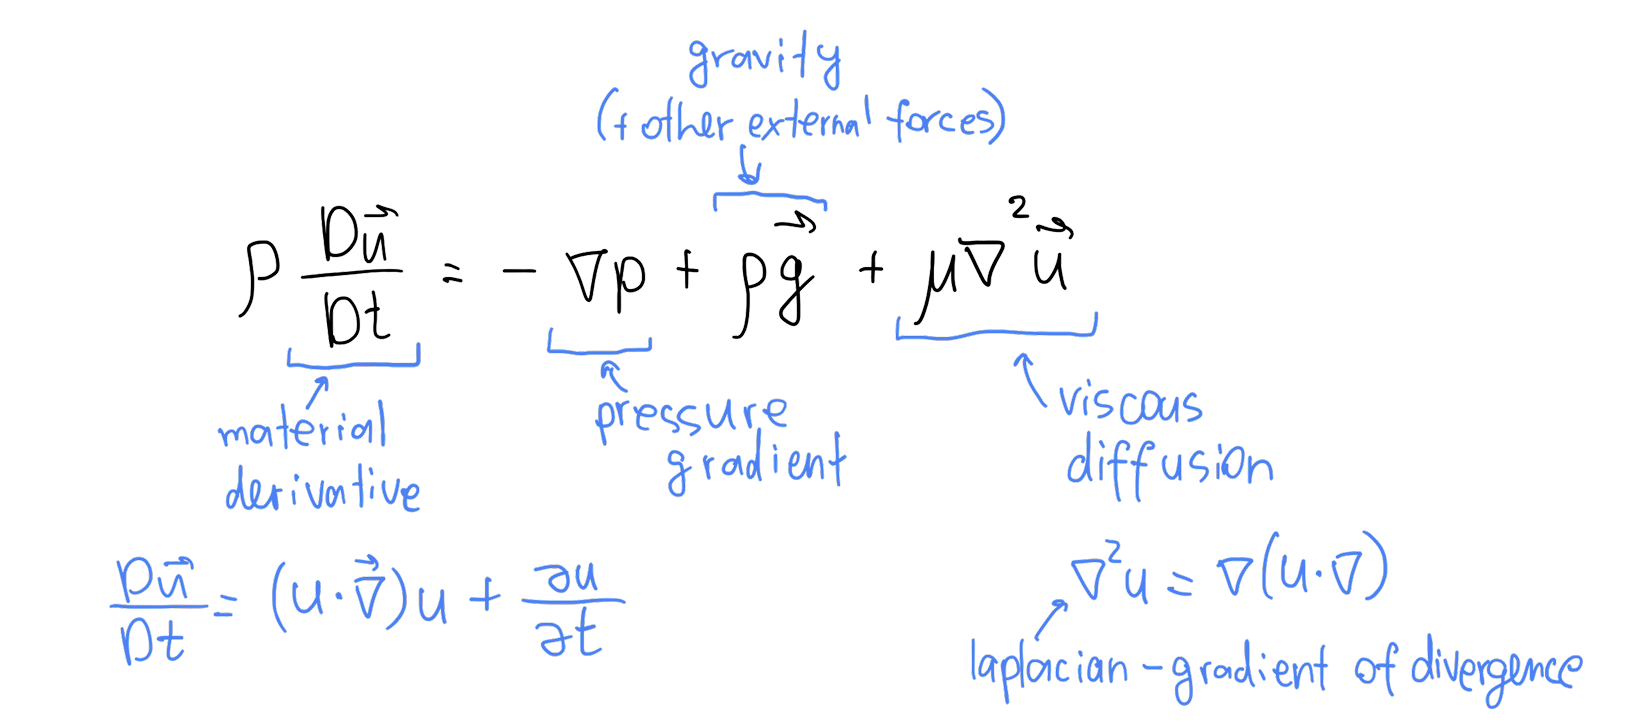 gravity
(+ other external forces)
ρ Du⃗/Dt = - ∇p + ρg⃗ + μ∇²u⃗
material
derivative
pressure
gradient
viscous
diffusion
Du⃗/Dt = (u·∇⃗)u + ∂u/∂t
∇²u = ∇(u·∇)
laplacian - gradient of divergence